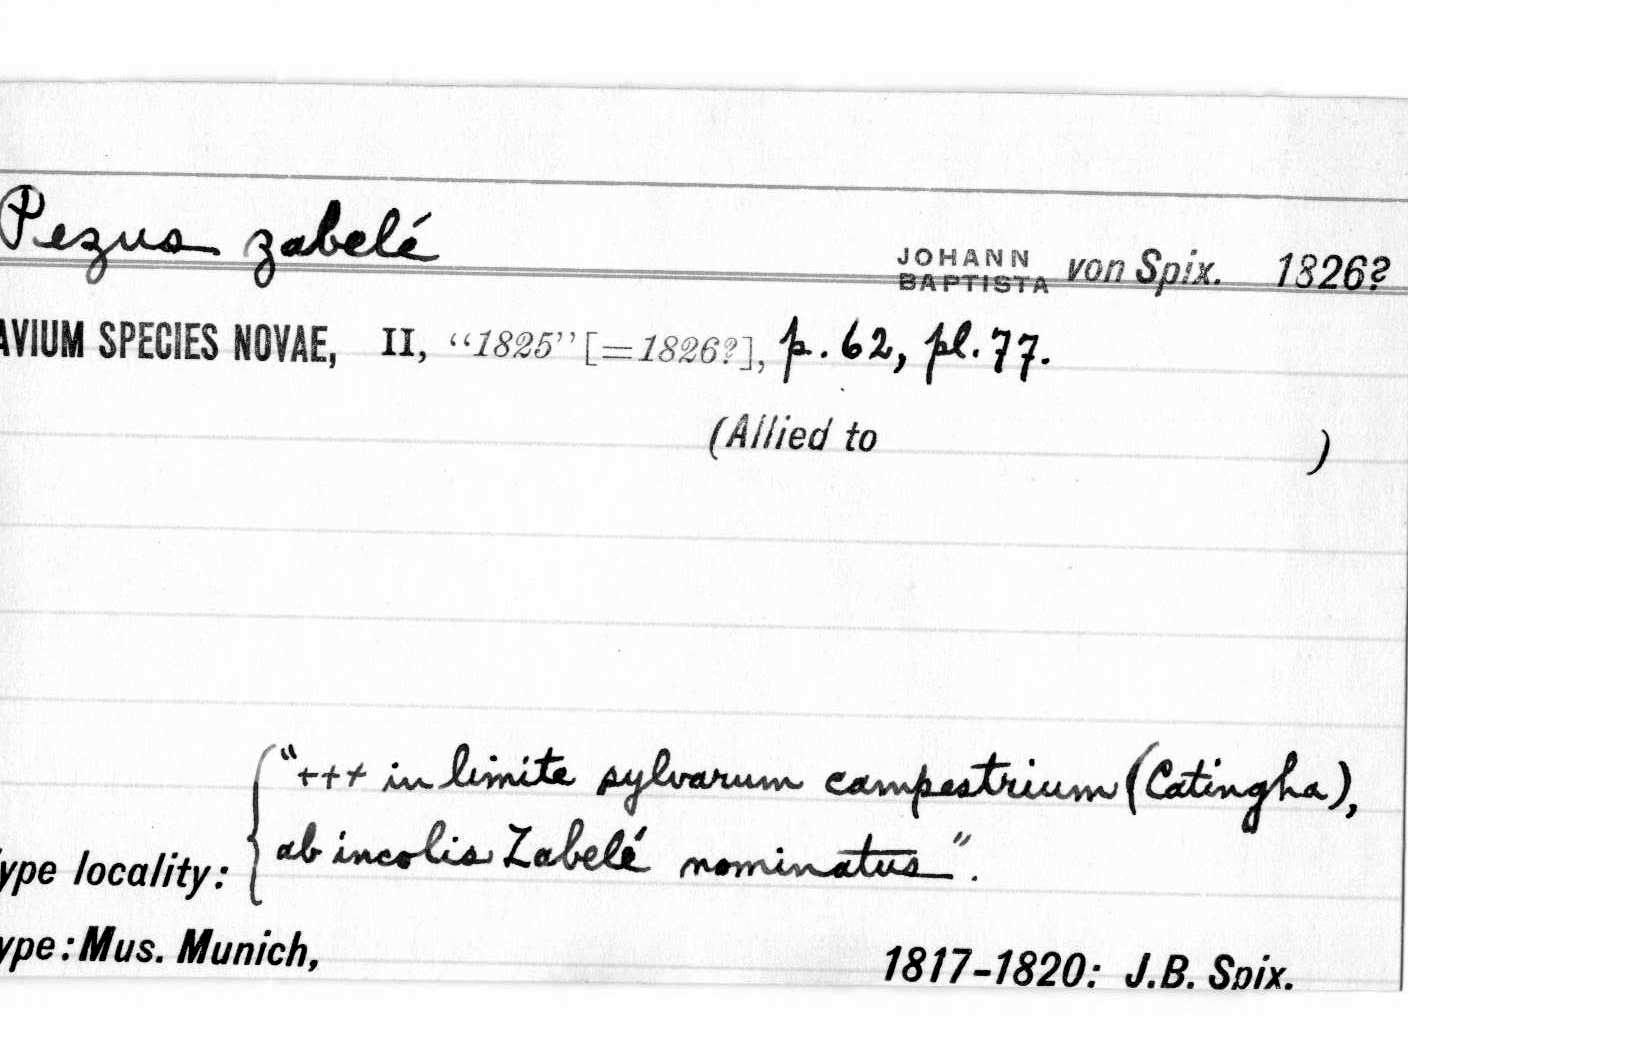 Pezus zabelé JOHANN BAPTISTA von Spix. 1826?
AVIUM SPECIES NOVAE, II, “1825” [=1826?], p. 62, pl. 77.
(Allied to )
“+++ in limite sylvarum campestrium (Catingha),
ype locality: ab incolis Zabelé nominatus”.
ype: Mus. Munich, 1817-1820: J.B. Spix.